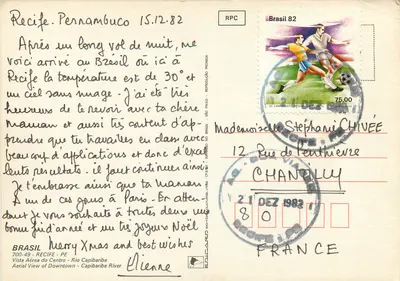 Recife. Pernambuco 15.12.82
Après un long vol de nuit, me
voici arrivé au Brésil où ici à
Recife la température est de 30° et
un ciel sans nuage. J'ai été très
heureux de te revoir avec ta chère
Maman et aussi très content d'ap-
prendre que tu travailles en classe avec
beaucoup d'applications et donc d'excel
lents resultats. il faut continuer ainsi
Je t'embrasse ainsi que ta maman
A un de ces jours à Paris. En atten
dant je vous souhaite à toutes deux une
bonne fin d'année et un très joyeux Noël
Merry Xmas and best wishes
Etienne
BRASIL
700-49 - RECIFE - PE
Vista Aérea do Centro - Rio Capibaribe
Aerial View of Downtown - Capibaribe River
RPC
Brasil 82
75,00
21 DEZ
Mademoiselle Stéphanie CHINÉE
12 Rue de Penthièvre
CHANTILLY
21 DEZ 1982
8 0
RECIFE PE
FRANCE